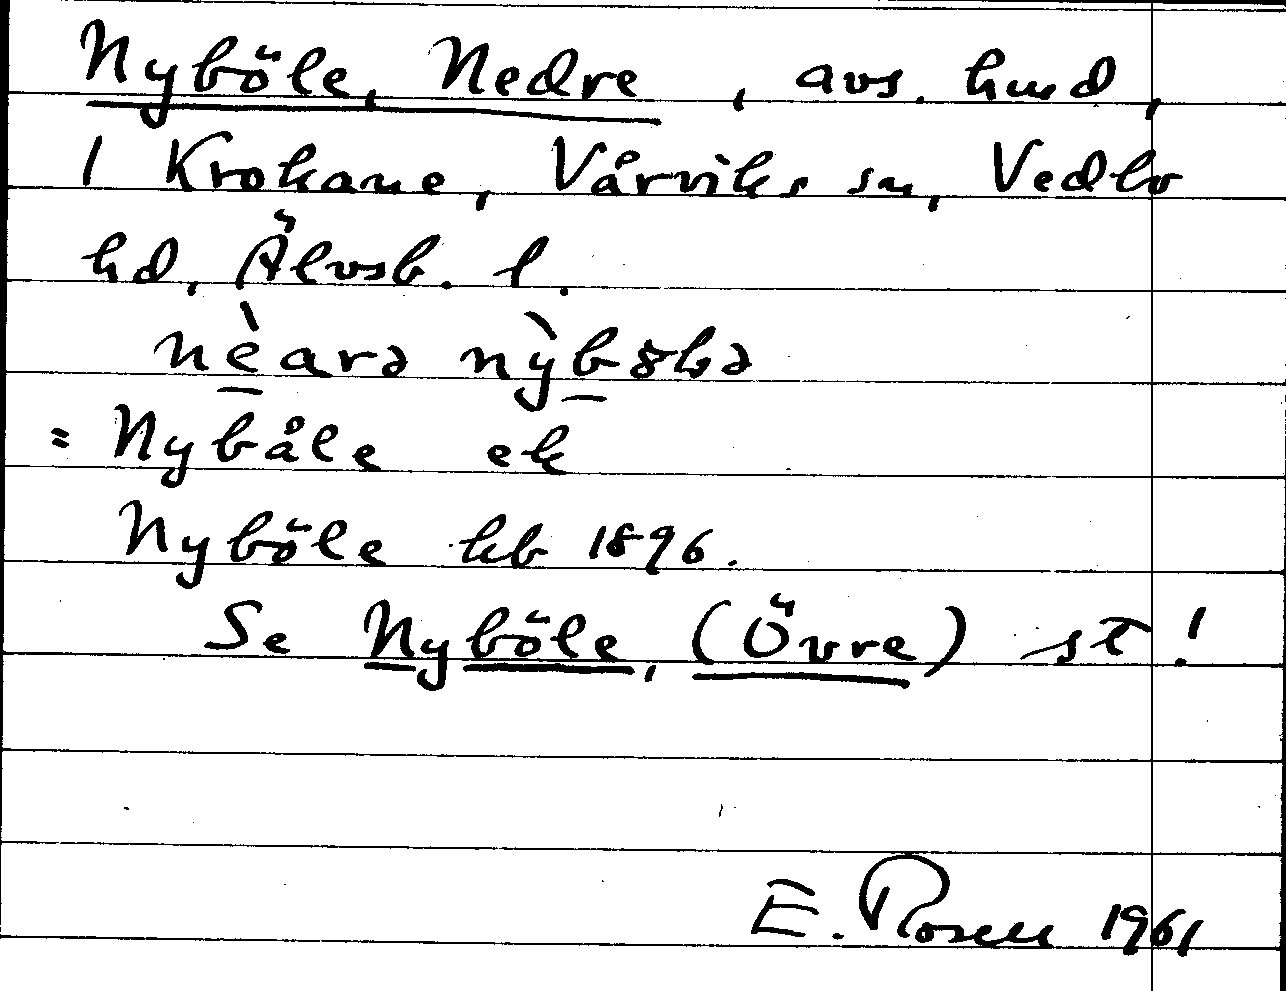 Nyböle, Nedre, avs. hmd,
1 Krokane, Vårviks sn, Vedbo
hd, Älvsb. l.
nèarə nỳbɷLə
= Nybåle ek
Nyböle kb 1896.
Se Nyböle, (Övre) st!
E. Rosell 1961